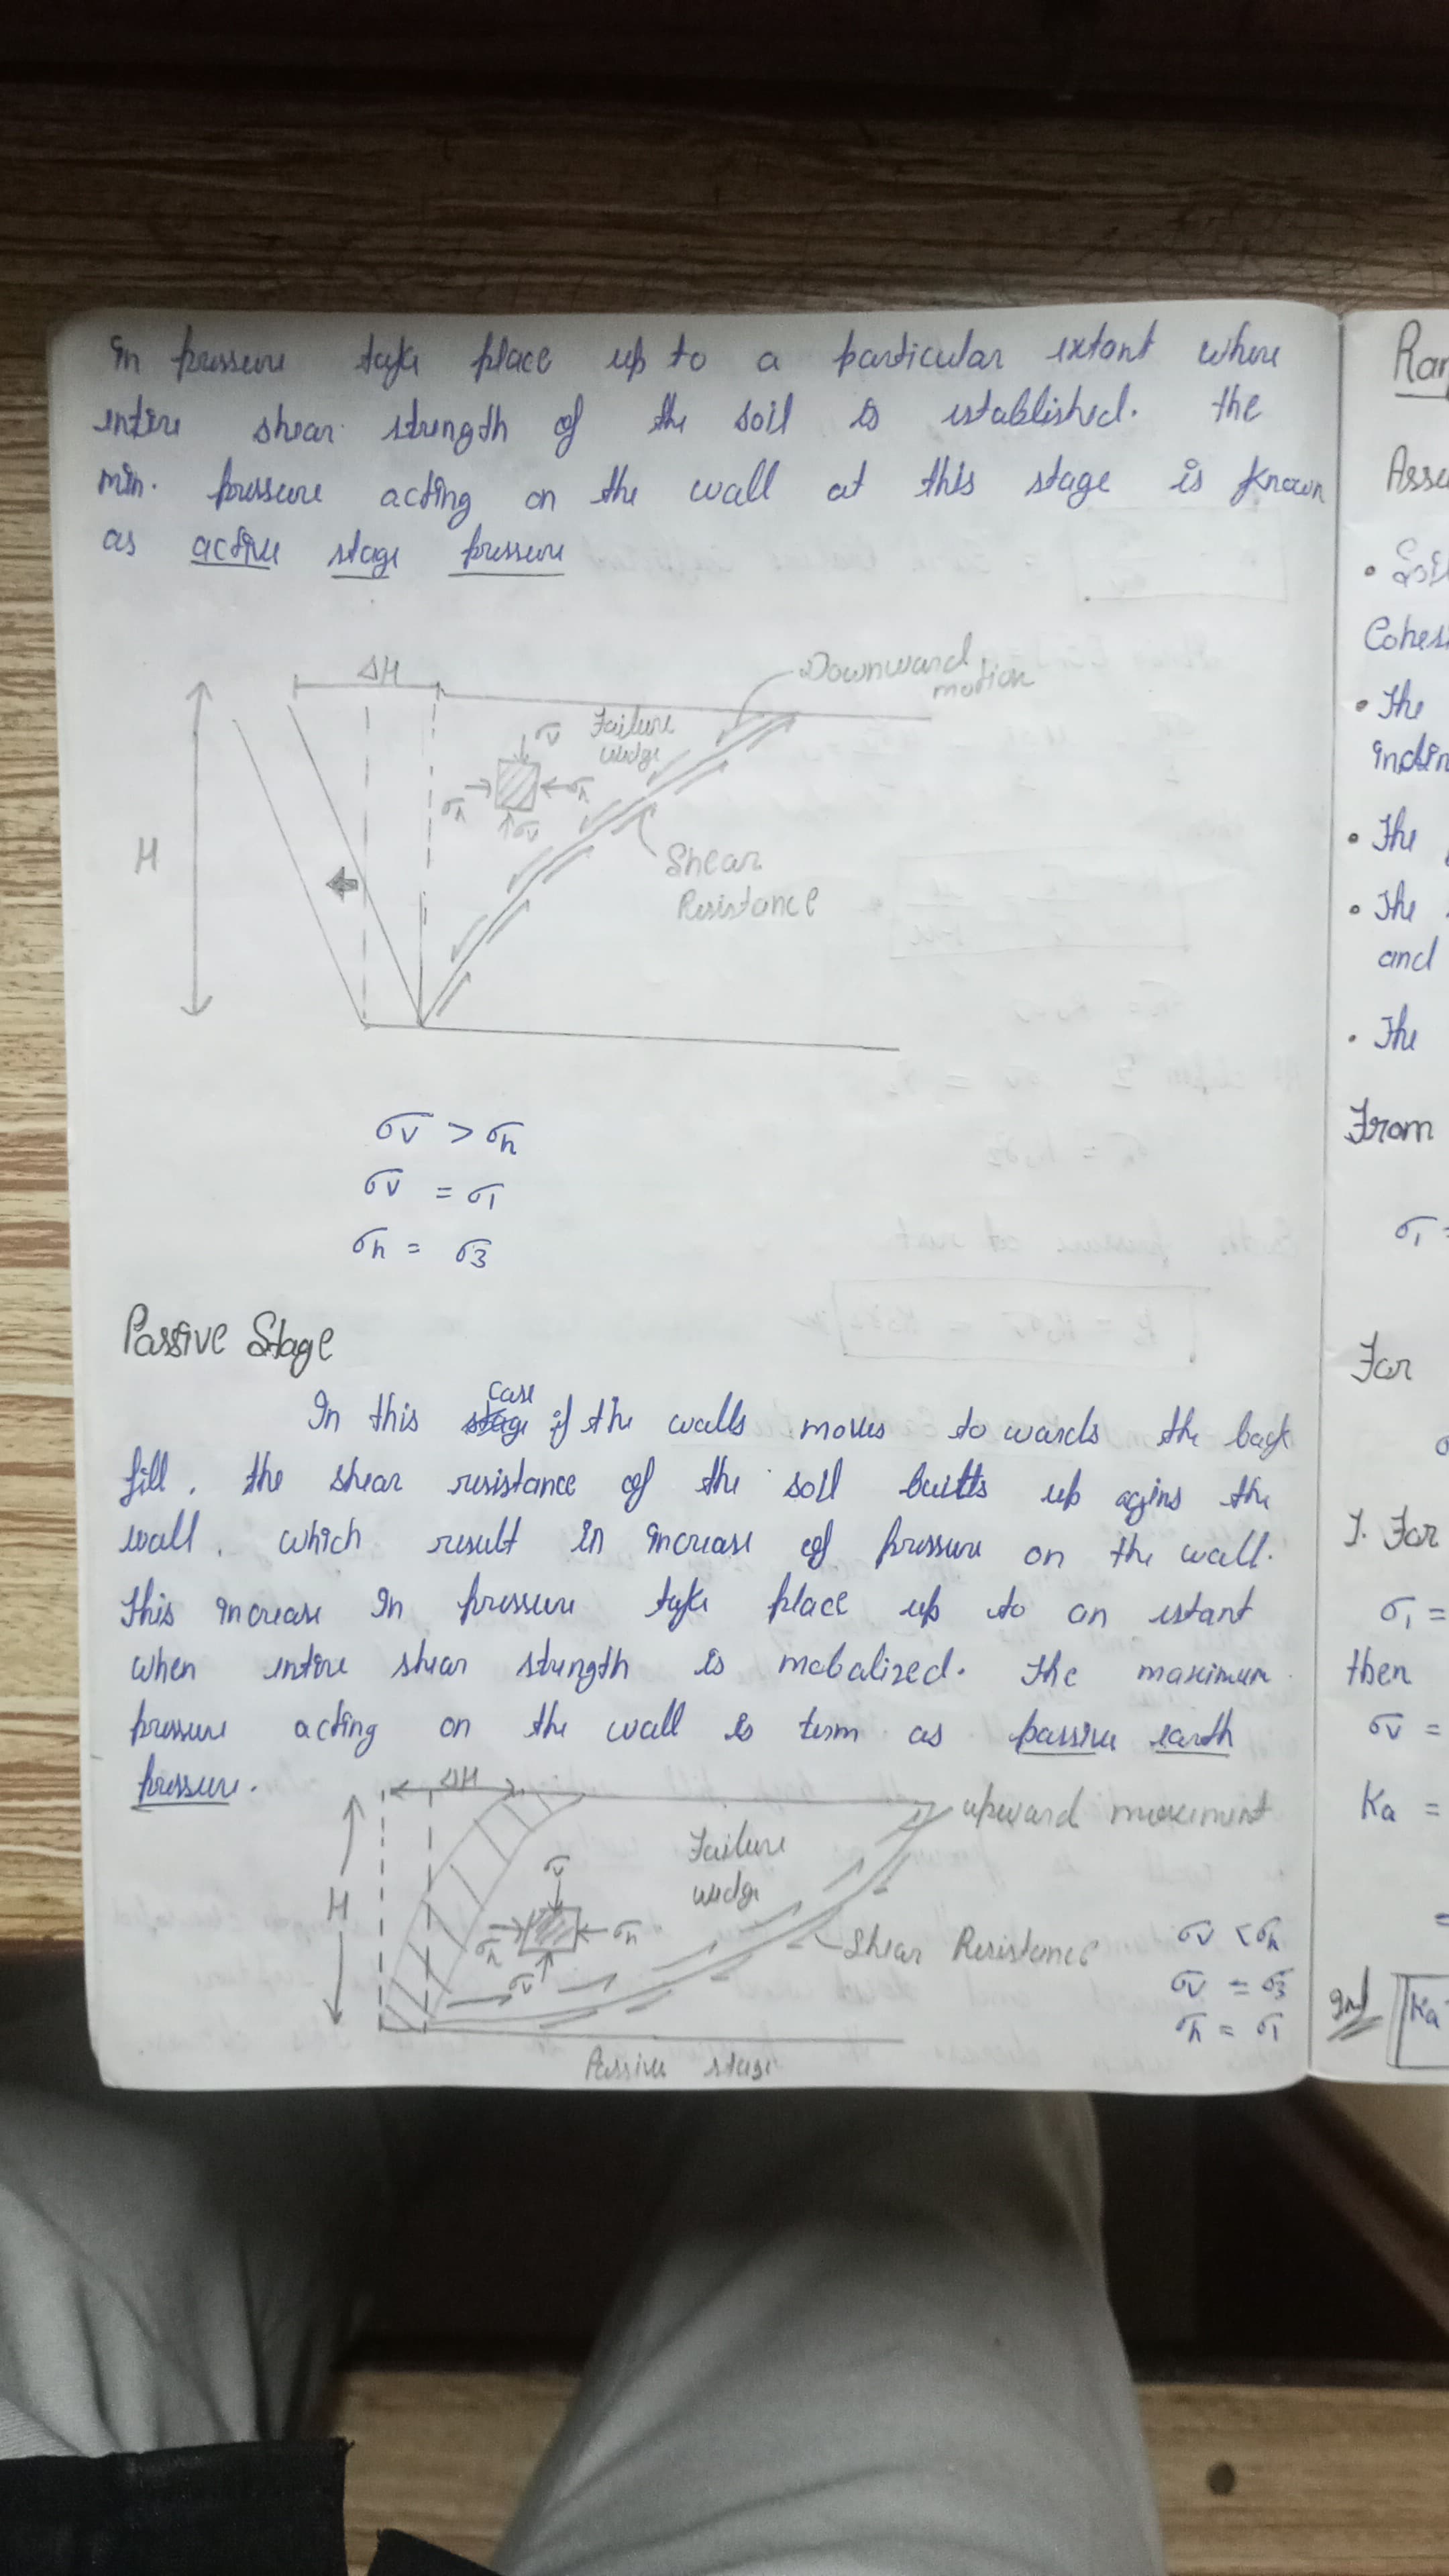 in pressure take place up to a particular extant where
entire shear strength of the soil is established. the
min. pressure acting on the wall at this stage is known
as active stage pressure
ΔH
Downward
motion
H
Failure
wedge
σv
σh
σh
σv
Shear
Resistance
σv > σh
σv = σ1
σh = σ3
Passive Stage
case
In this stage if the walls moves to wards the back
fill. the shear resistance of the soil up agins the
wall. which result in increase of pressure on the wall.
This increase in pressure take place up to an extant
when entire shear strength is mobalized. The maximum
pressure acting on the wall is term as passive earth
pressure.
ΔH
upward movement
Failure
wedge
H
σv
σh
σh
σv
Shear Resistance
σv < σh
σv = σ3
σh = σ1
Passive stage
Ran
Assu
• Soil
Cohesi
• The
inclin
• The
• The
and
• The
From
σ1 =
For
σ
1. For
σ1 =
then
σv =
Ka =
=
Ka